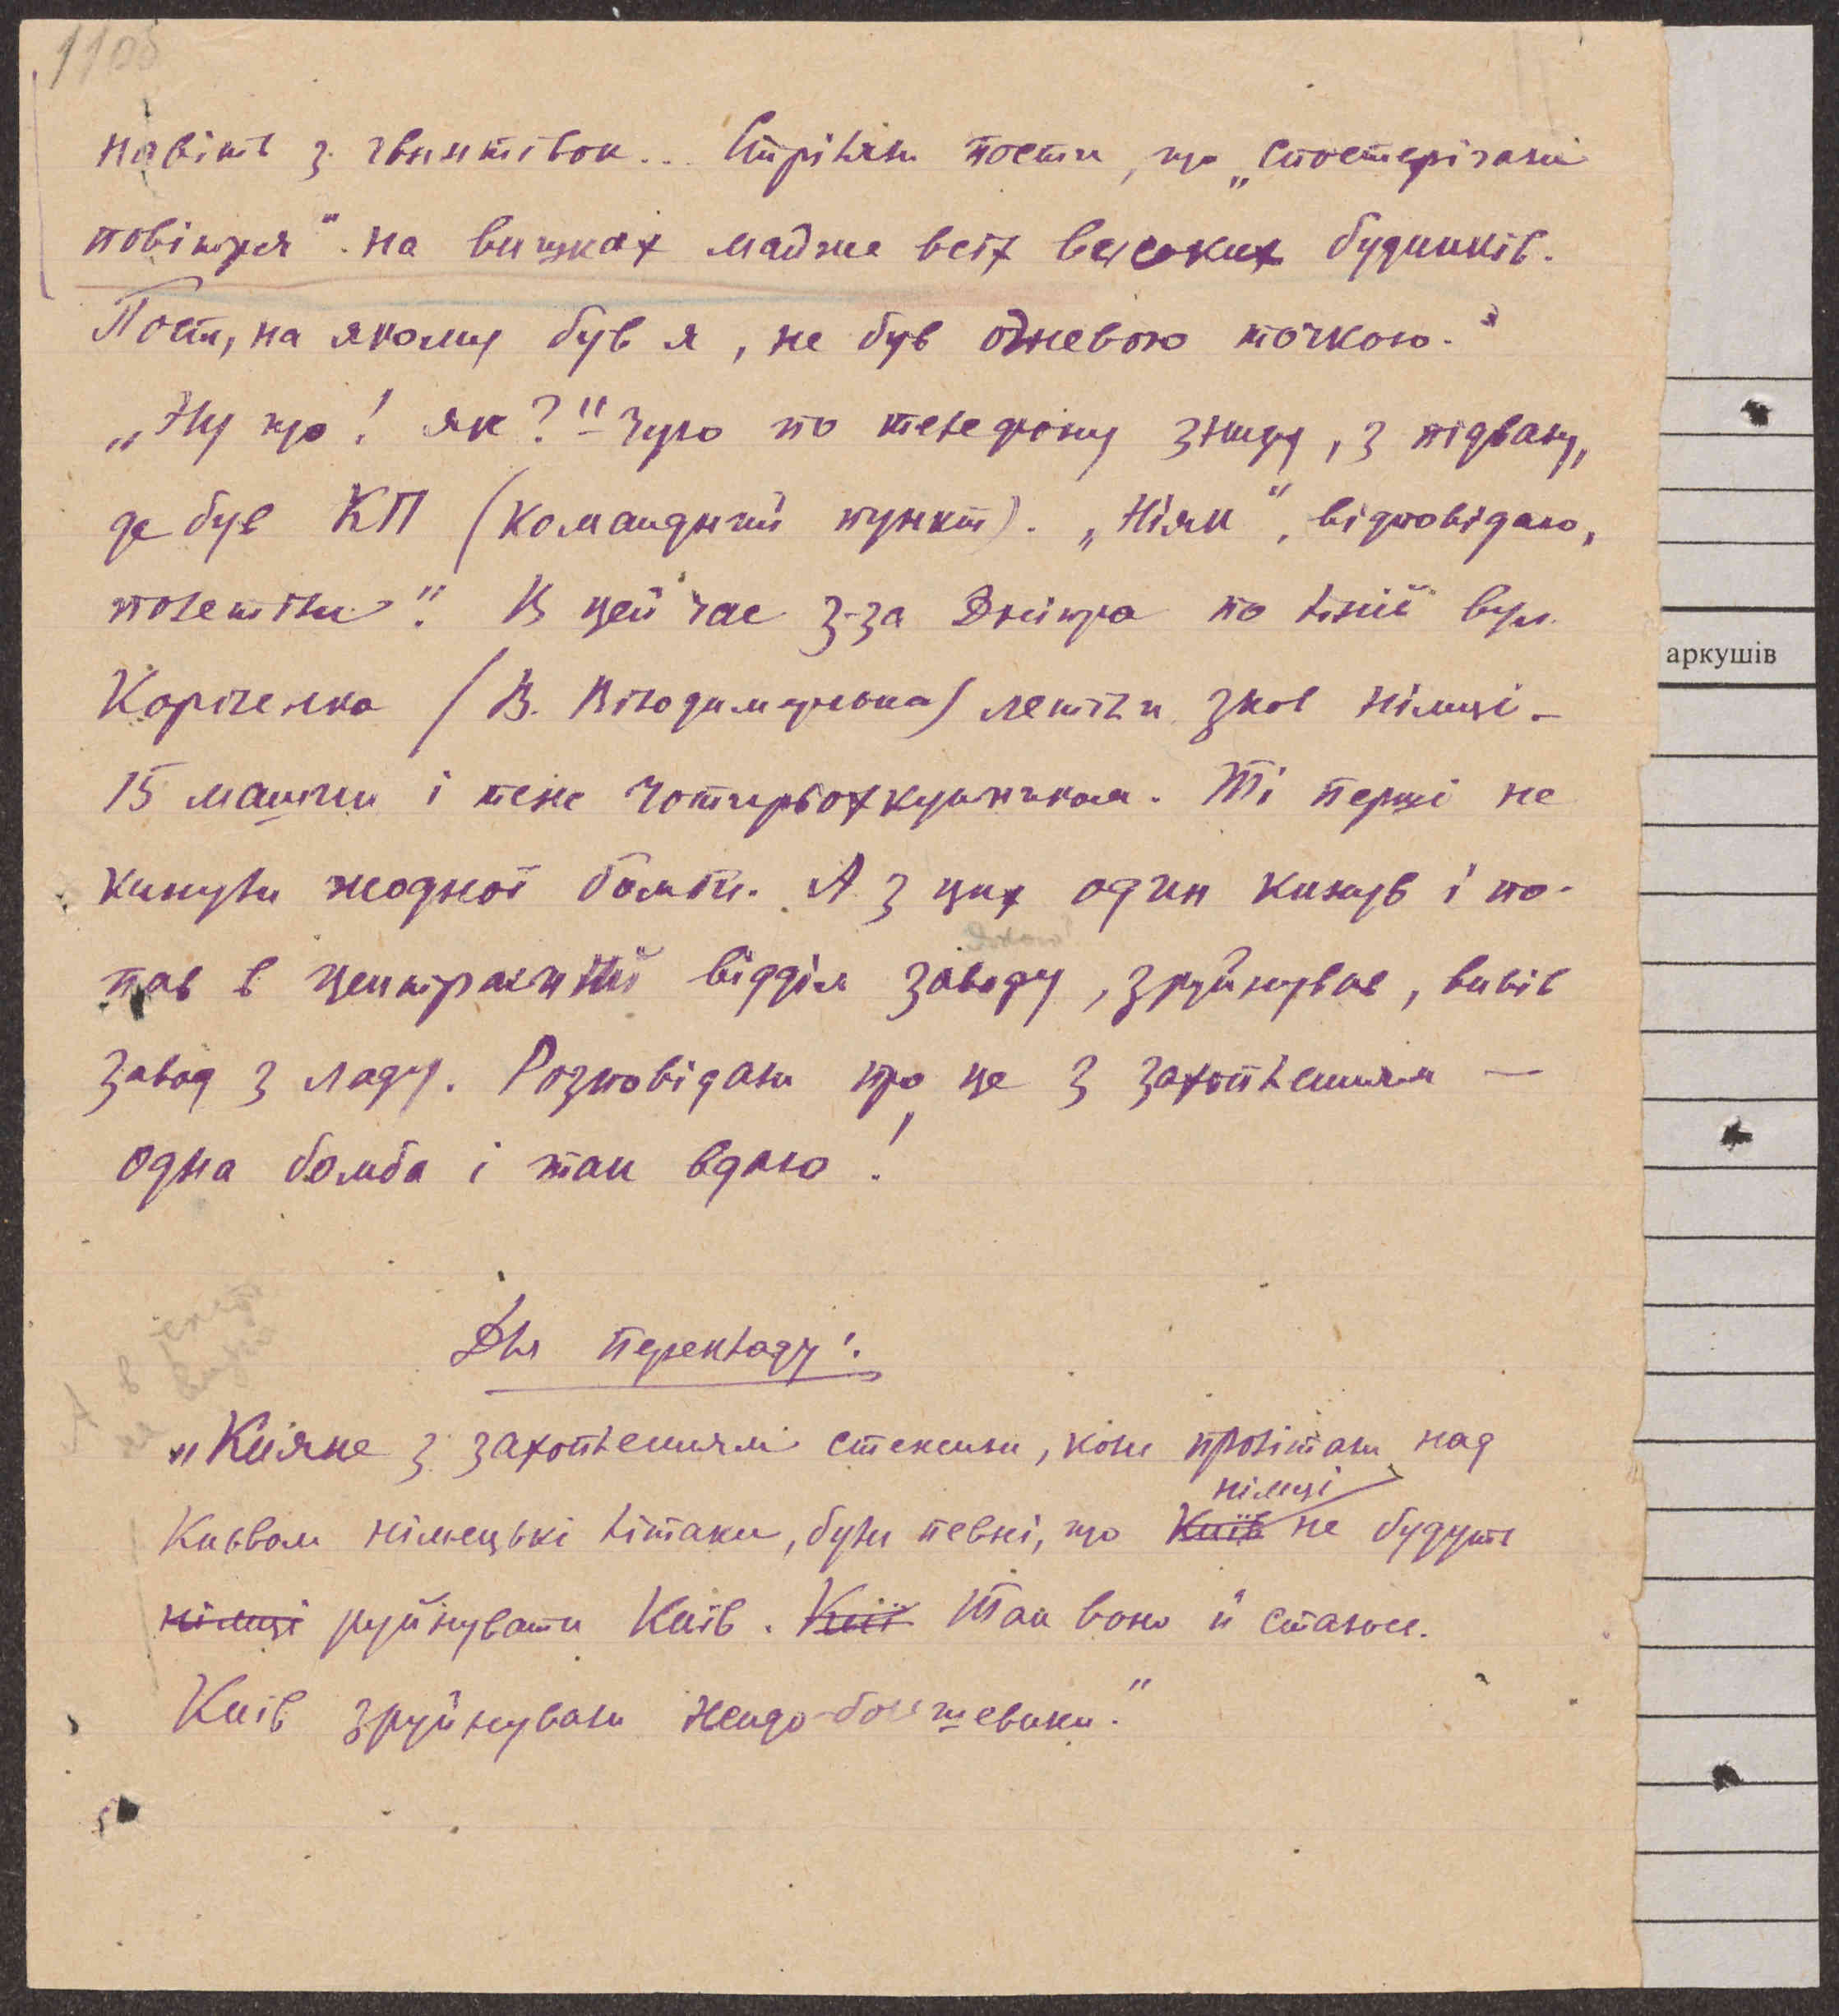 1105
навіть з гвинтівок... Стріляли пости, що „спостерігали
повітря" на вишках майже всіх високих будинків.
Пост, на якому був я, не був огневою точкою."
„Ну що! як?" – чую по телефону знизу, з підвалу,
де був КП (командний пункт). „Ніяк", відповідаю,
полетіли". В цей час з-за Дніпра по лінії вул.
Короленка (В. Володимирська) летіли знов німці –
15 машин і теж чотирьохкутником. Ті перші не
кинули жодної бомби. А з цих один кинув і по-
пав в центральний відділ заводу, зруйнував, вивів
завод з ладу. Розповідали про це з захопленням —
одна бомба і так вдало!
А в
не
Для перекладу:
„Кияне з захопленням стежили, коли пролітали над
німці
Киъвом німецькі літаки, були певні, що Київ не будуть
німці руйнувати Київ. Киї Так воно й сталося.
Київ зруйнували жидо-большевики."
аркушів